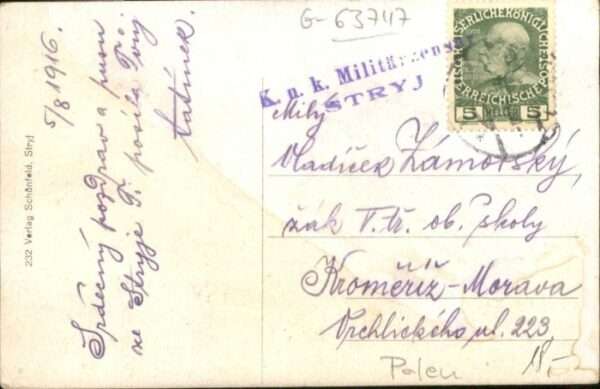 G-63747
5/8 1916.
Srdečný pozdrav a pusu
ze Stryje Ti posílá Tvůj
tatínek.
232 Verlag Schönfeld, Stryj
K. u. k. Militärzens
STRYJ
KAISERLICHE KÖNIGLICHE ÖSTERREICHISCHE
5 5
Milý
Vladíček Zámorský,
žák I. tř. ob. školy
Kroměříž-Morava
Vrchlického ul. 223
Polen
18,-